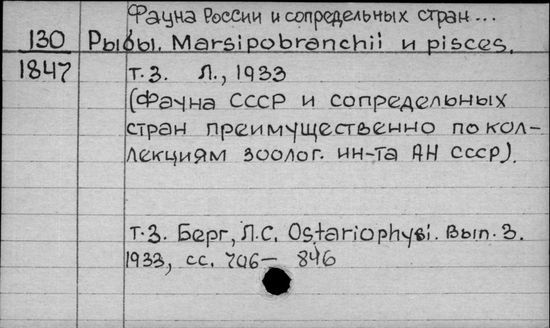 Фауна России и сопредельных стран...
130 Рыбы. Marsipobranchii и pisces.
1847 т.3. Л., 1933
(Фауна СССР и сопредельных
стран преимущественно по кол-
лекциям зоолог. ин-та АН СССР).
т.3. Берг, Л.С. Ostariophysi. Вып. 3.
1933, сс. 706- 846